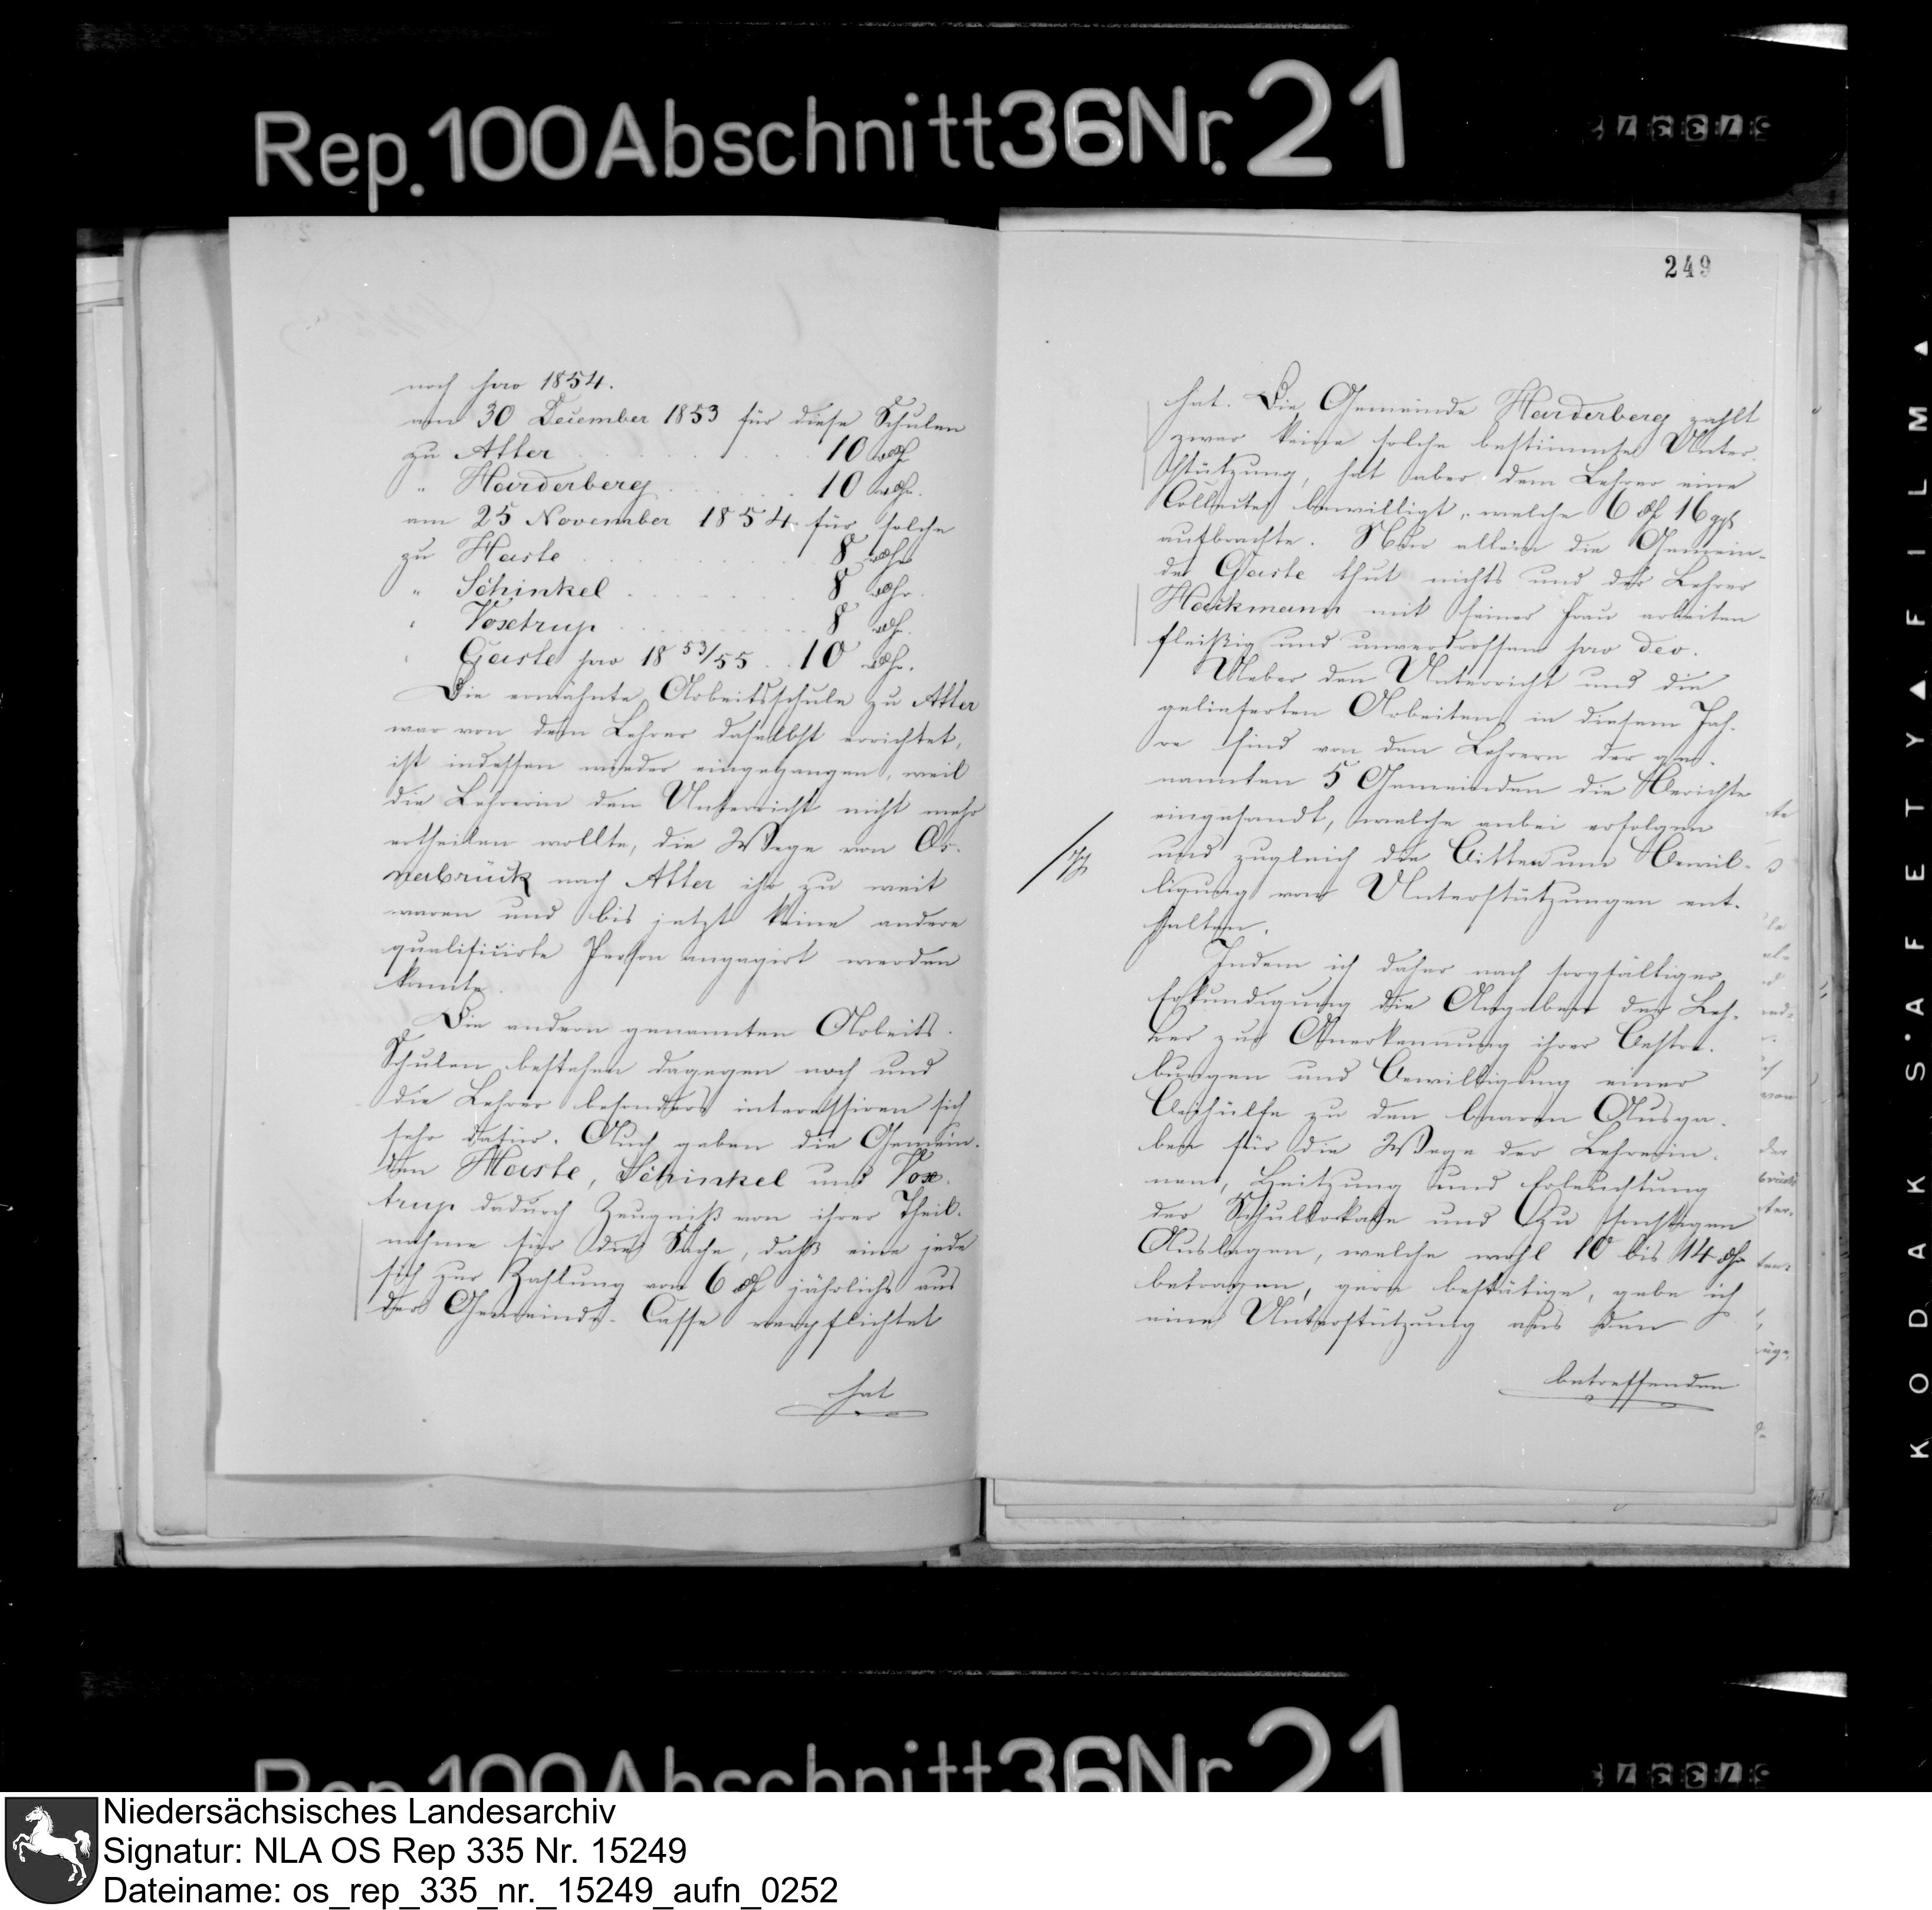 Rep. 100 Abschnitt 36 Nr. 21
noch pro 1854.
am 30 December 1853 für diese Schulen
zu Atter 10 rthlr
" Harderberg 10 rthlr.
am 25 November 1854 für solche
zu Haste 8 rthlr
" Schinkel 8 rthlr.
" Voxtrup 8 rthlr.
" Gaste pro 18 53/55 10 rthlr.
Die erwähnte Arbeitsschule zu Atter
war von dem Lehrer daselbst errichtet,
ist indessen wieder eingegangen, weil
die Lehrerin den Unterricht nicht mehr
ertheilen wollte, die Wege von Os-
nabrück nach Atter ihr zu weit
waren und bis jetzt keine andere
qualificirte Person engagirt werden
konnte.
Die andern genannten Arbeits-
Schulen bestehen dagegen noch und
die Lehrer besonders interessiren sich
sehr dafür. Auch geben die Gemein-
den Haste, Schinkel und Vox-
trup dadurch Zeugniß von ihrer Theil-
nahme für die Sache, daß eine jede
sich zur Zahlung von 6 rthlr jährlichs aus
der Gemeinde-Casse verpflichtet
hat
249
hat. Die Gemeinde Harderberg zahlt
zwar keine solche bestimmte Unter-
stützung, hat aber dem Lehrer eine
Collecte bewilligt, welche 6 rthlr 16 ggr
aufbrachte. Nur allein die Gemein-
de Gaste thut nichts und der Lehrer
Hackmann mit seiner Frau arbeiten
fleißig und unverdrossen pro deo.
Ueber den Unterricht und die
gelieferten Arbeiten in diesem Jah-
re sind von den Lehrern der ge-
nannten 5 Gemeinden die Berichte
eingesandt, welche anbei erfolgen
und zugleich die Bitten um Bewil-
ligung von Unterstützungen ent-
halten.
Indem ich daher nach sorgfältiger
Erkundigung die Angaben der Leh-
rer zur Anerkennung ihrer Bestre-
bungen und Bewilligung einer
Beihülfe zu den baaren Ausga-
ben für die Wege der Lehrerin-
nen, Heitzung und Erleuchtung
der Schullokale und zu sonstigen
Auslagen, welche wohl 10 bis 14 rthlr
betragen, gern bestätige, gebe ich
eine Unterstützung aus den
betreffenden
KODAK S'AFETY FILM
Niedersächsisches Landesarchiv
Signatur: NLA OS Rep 335 Nr. 15249
Dateiname: os_rep_335_nr._15249_aufn_0252